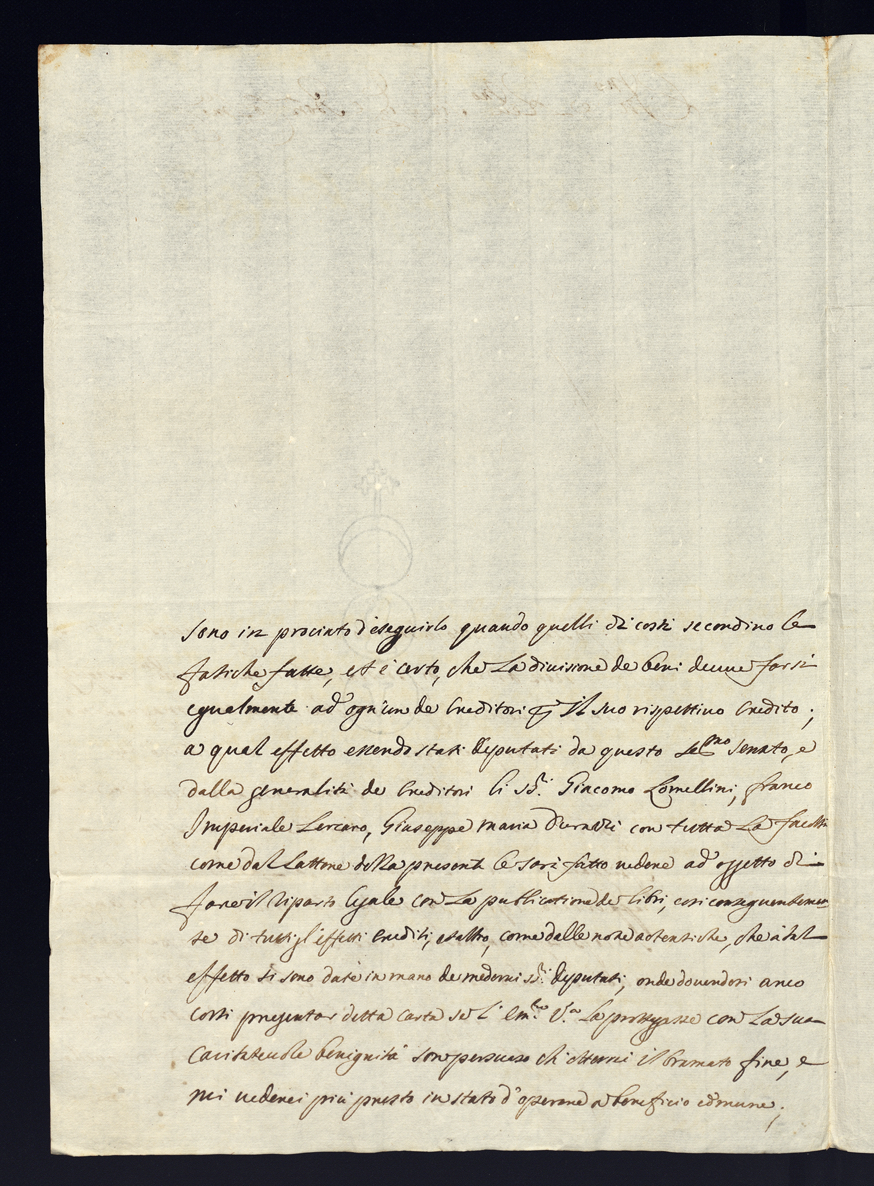 sono in procinto d'eseguirlo quando quelli di costì secondino le
fatiche fatte, et è certo, che La divisione de beni deuue farsi
egualmente ad ogn'un de Creditori il suo rispettiuo Credito;
a qual effetto essendo stati deputati da questo Ser.mo Senato, e
dalla generalità de Creditori li SS.ri Giacomo Lomellini, franco
Imperiale Lercaro, Giuseppe Maria Durazzi con tutta La facoltà
come dal Lattore della presente le sarà fatto uedere ad oggetto di
fare il riparto legale con La publicatione de libri, cosi conseguentemen
te di tutti gl'effetti crediti, et altro, come dalle note autentiche, che à tal
effetto si sono date in mano de medemi SS.ri deputati, onde douendosi anco
costì presentar detta carta se L'Em.za V.a La proteggesse con La sua
caritateuole benignità son persuaso ch'otterrei il bramato fine, e
mi uederei più presto in stato d'operare a beneficio comune;